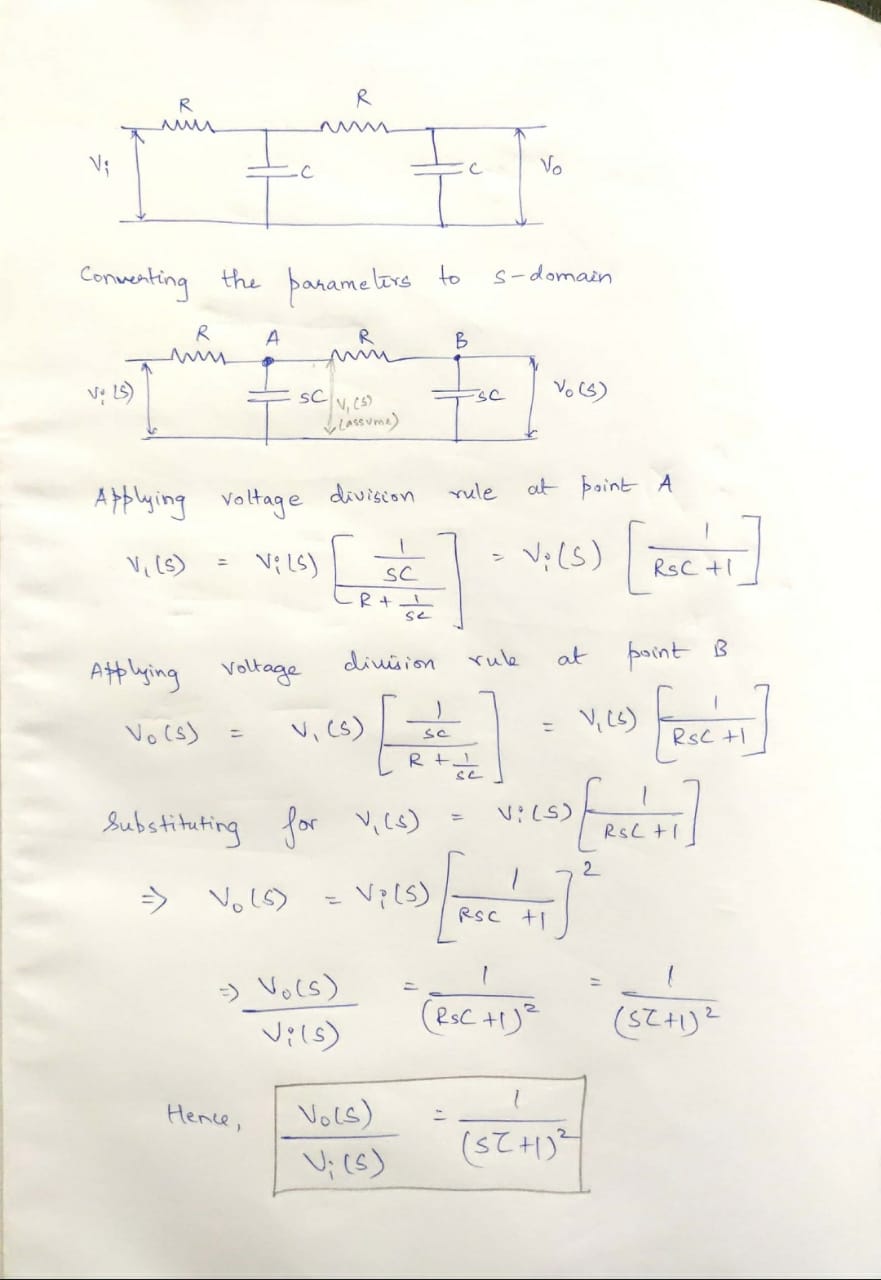 R R
Vi C C Vo
Converting the parameters to s-domain
R A R B
Vi(s) SC V₁(s) SC Vo(s)
(assume)
Applying voltage division rule at point A
V₁(s) = Vi(s) [ (1/SC) / (R + 1/SC) ] = Vi(s) [ 1 / (RSC +1) ]
Applying voltage division rule at point B
Vo(s) = V₁(s) [ (1/SC) / (R + 1/SC) ] = V₁(s) [ 1 / (RSC +1) ]
Substituting for V₁(s) = Vi(s) [ 1 / (RSC +1) ]
⇒ Vo(s) = Vi(s) [ 1 / (RSC +1) ]²
⇒ Vo(s) / Vi(s) = 1 / (RSC +1)² = 1 / (Sτ+1)²
Hence, Vo(s) / Vi(s) = 1 / (Sτ+1)²